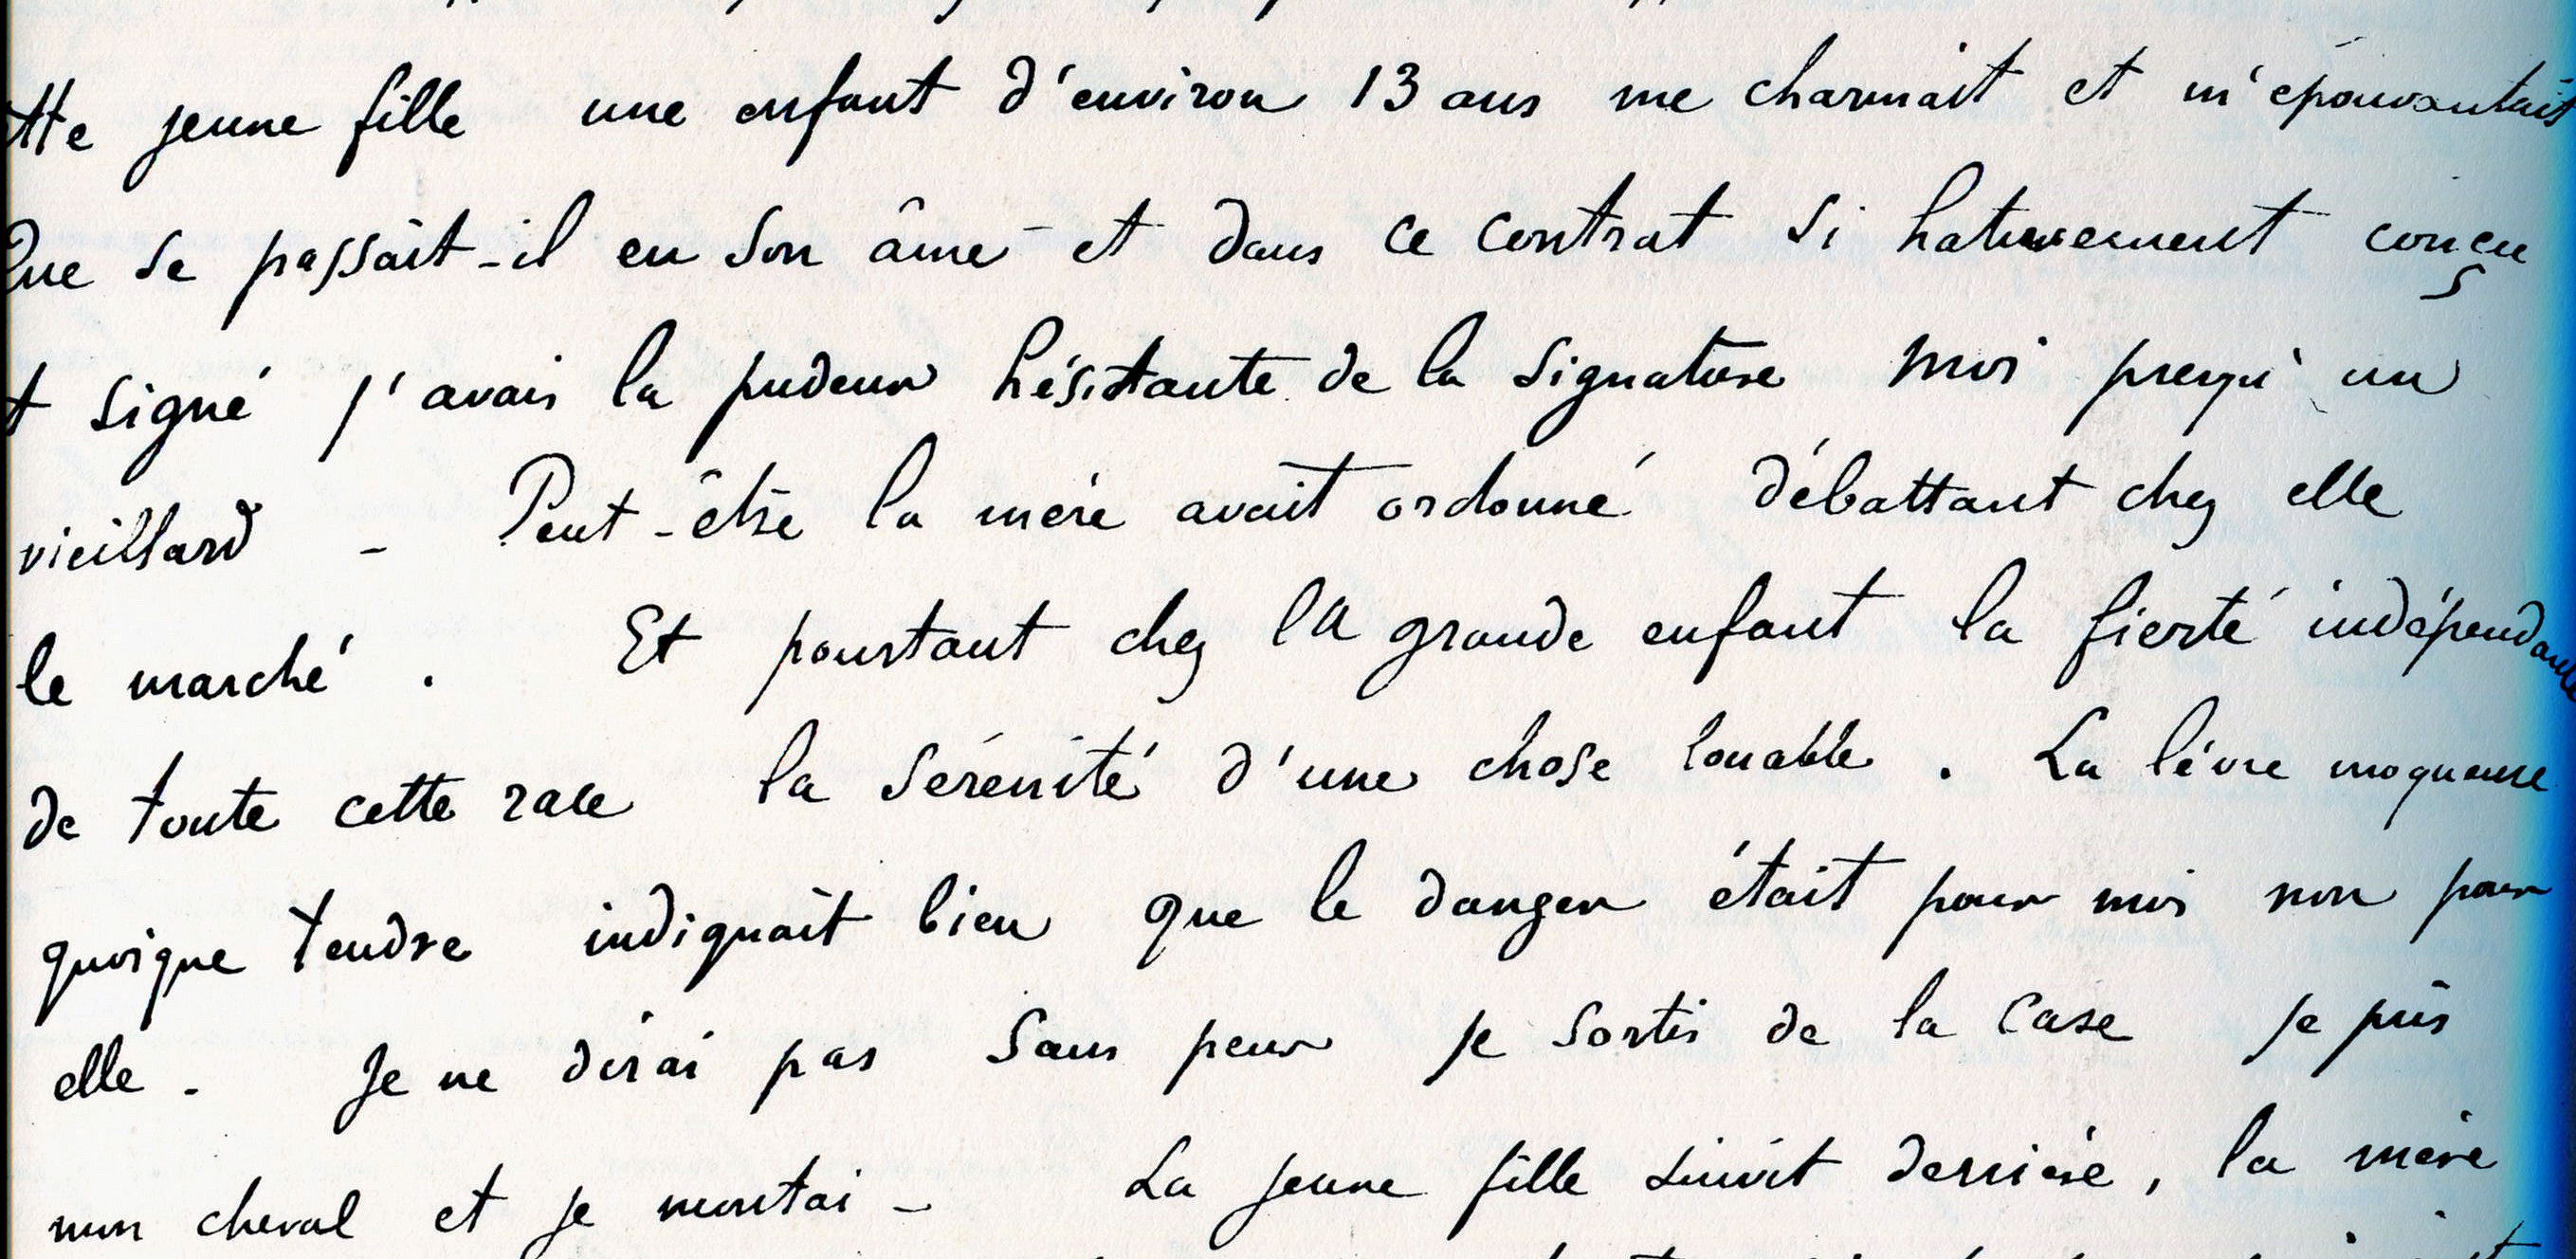 tte jeune fille une enfant d'environ 13 ans me charmait et m'épouvantait
Que se passait-il en son âme - et dans ce contrat si hativement conçu
t signé j'avais la pudeur hésitante de la signature moi presqu'un
vieillard - Peut-être la mère avait ordonné débattant chez elle
le marché . Et pourtant chez la grande enfant la fierté indépendante
de toute cette race la sérénité d'une chose louable . La lèvre moqueuse
quoique tendre indiquait bien que le danger était pour moi non pour
elle - Je ne dirai pas sans peur je sortis de la case je pris
mon cheval et je montai - La jeune fille suivit derrière, la mère